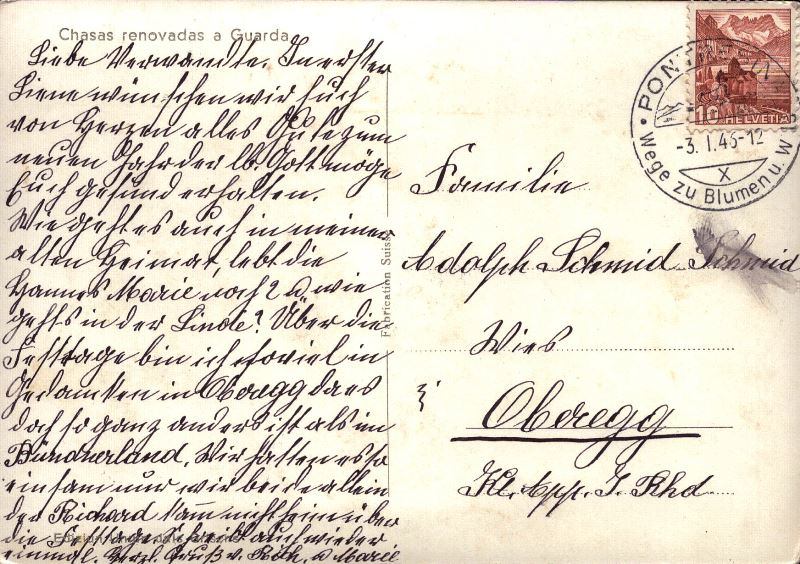 Chasas renovadas a Guarda
Liebe Verwandte. In erster
Liene wünschen wir Euch
von Herzen alles Gute zum
neuen Jahr der lb. Gott möge
Euch gesund erhalten.
Wie geht es auch in meiner
alten Heimat, lebt die
Hannes Marie noch? u. wie
gehts in der Linde? Über die
Festtage bin ich so viel in
Gedanken in Oberegg da es
doch so ganz anders ist als im
Bündnerland. Wir hatten es so
einsam nur wir beide allein
der Richard kam nicht heim über
die Festtage schreibt auch wieder
einmal. Herzl. Gruß v. u. Marie
Fabrication Suisse
10 HELVETIA
-3. I. 46-12
X
Wege zu Blumen u.
Familie
Adolph Schmid-Schmid
Wies
Oberegg
Kt. App. I. Rhd